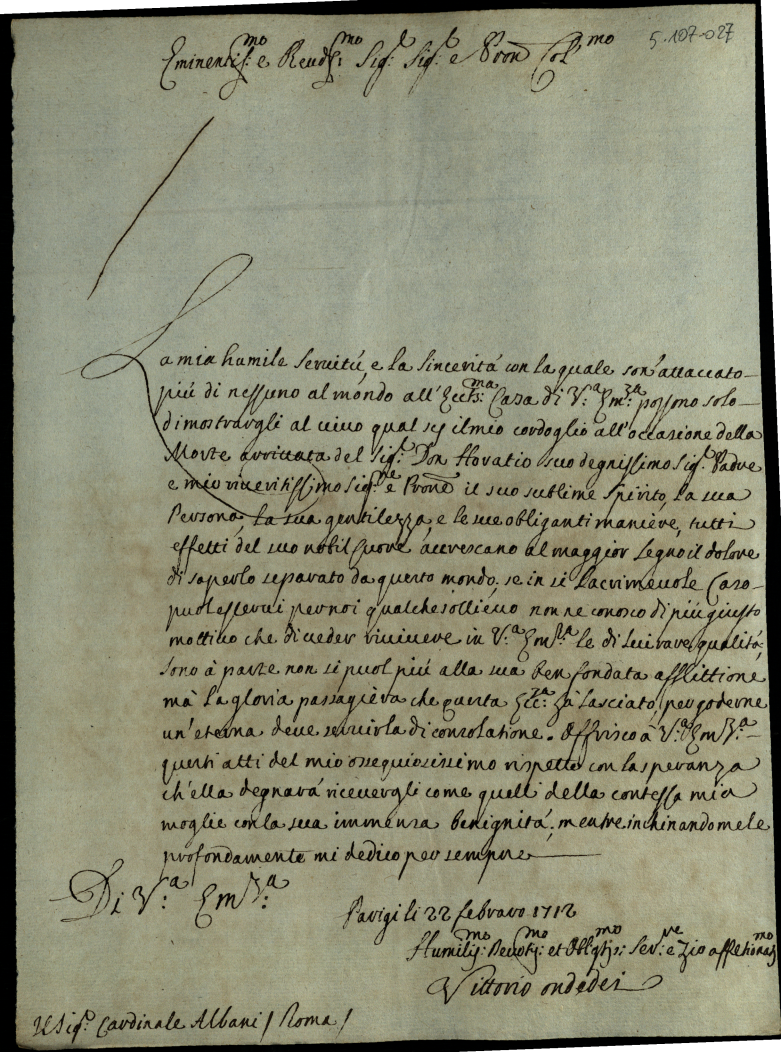 5.107-027
Eminentiss:mo e Revdss:mo Sigr: Sigr: e Pron Col:mo
La mia humile servitú, e la sincerità con la quale son' attaccato
piú di nessuno al móndo all' Eccts:ma Casa di V:a Em:za possono solo
dimostrargli al vivo qual sij il mio cordoglio all' occasione della
Morte arrivata del Sigr: Don Horatio suo degnissimo Sigr: Padre
e mio riveritissimo Sigre e Prone il suo sublime spirito, la sua
Persona, la sua gentilezza, e le sue obliganti maniere, tutti
effetti del suo nobil Cuore accrescano al maggior segno il dolore
di saperlo separato da questo mondo. se in si lacrimevole Caso
puol esservi per noi qualche sollievo non ne conosco di piú giusto
mottivo che di veder rivivere in V:a Em:za le di lui rare qualitá,
sono à parte non si puol piú alla sua ben fondata afflittione
mà la gloria passagiera che questa Ecc:za hà lasciato, per goderne
un' eterna deve servirla di consolatione. Offrisco á V:a Em:za
questi atti del mio ossequiosissimo rispetto con la speranza
ch' ella degnará ricevergli come quelli della contessa mia
moglie con la sua immensa benignitá, mentre inchinandomele
profondamente mi dedico per sempre
Di V:a Em:za
Parigi li 22 febraro 1712
Humiliss:mo Devotiss:mo et Obligtiss:mo Ser:re e Zio affetionatmo
Vittorio ondedei
Il Sigr: Cardinale Albani / Roma /